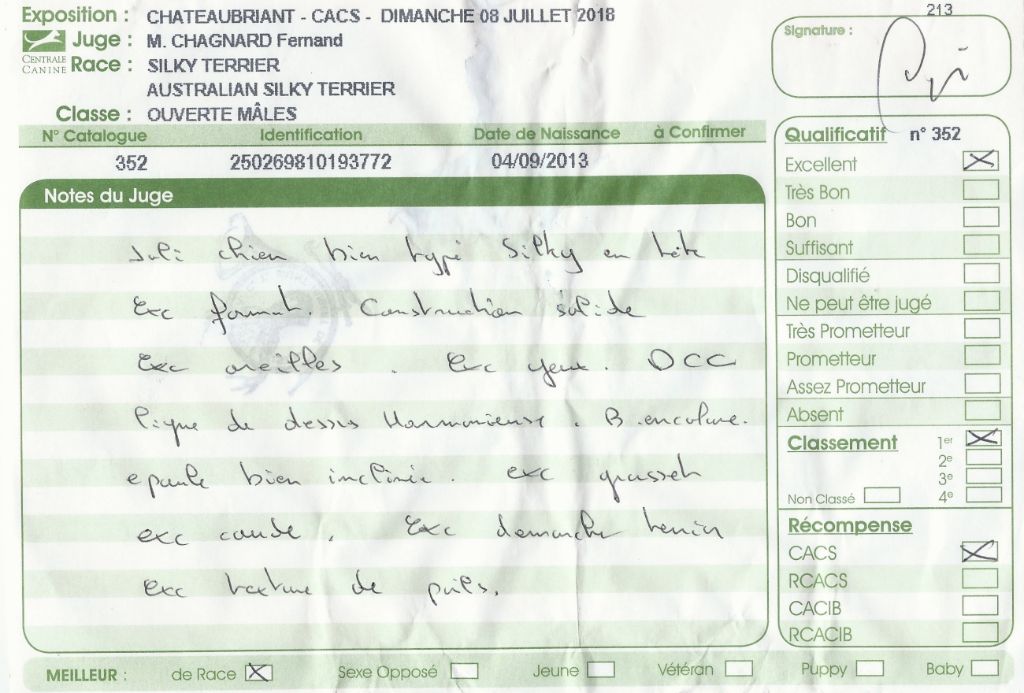 213
Exposition : CHATEAUBRIANT - CACS - DIMANCHE 08 JUILLET 2018
Juge : M. CHAGNARD Fernand
CENTRALE CANINE
Race : SILKY TERRIER
AUSTRALIAN SILKY TERRIER
Classe : OUVERTE MÂLES
Signature :
N° Catalogue Identification Date de Naissance à Confirmer
352 250269810193772 04/09/2013
Notes du Juge
Joli chien bien typé Silky en tête
Exc format. Construction solide
Exc oreilles . Exc yeux . DCC
ligne de dessus Harmonieuse . B. encolure.
epaule bien inclinée . exc grasset
exc coude . Exc demarche
exc texture de poils.
Qualificatif n° 352
Excellent
Très Bon
Bon
Suffisant
Disqualifié
Ne peut être jugé
Très Prometteur
Prometteur
Assez Prometteur
Absent
Classement 1er
2e
3e
Non Classé 4e
Récompense
CACS
RCACS
CACIB
RCACIB
MEILLEUR : de Race Sexe Opposé Jeune Vétéran Puppy Baby